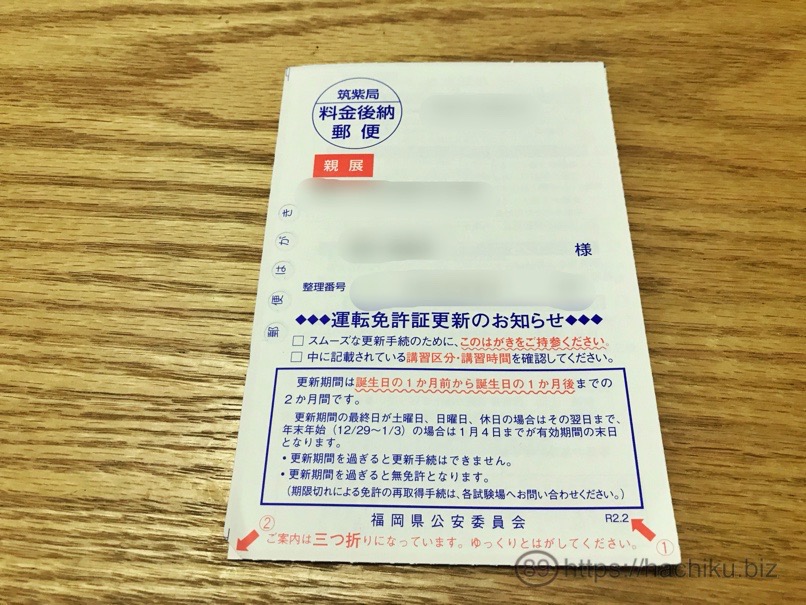 筑紫局
料金後納
郵便
親展
郵便はがき
様
整理番号
◆◆◆運転免許証更新のお知らせ◆◆◆
□ スムーズな更新手続のために、このはがきをご持参ください。
□ 中に記載されている講習区分・講習時間を確認してください。
更新期間は誕生日の1か月前から誕生日の1か月後までの
2か月間です。
更新期間の最終日が土曜日、日曜日、休日の場合はその翌日まで、
年末年始（12/29～1/3）の場合は1月4日までが有効期間の末日
となります。
・更新期間を過ぎると更新手続はできません。
・更新期間を過ぎると無免許となります。
（期限切れによる免許の再取得手続は、各試験場へお問い合わせください。）
福岡県公安委員会
R2.2
②
ご案内は三つ折りになっています。ゆっくりとはがしてください。
①
89 https://hachiku.biz